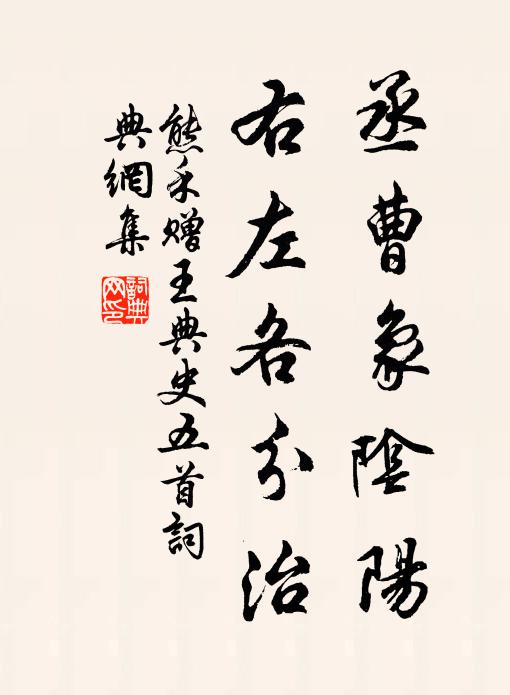 丞曹象陰陽
右左各分治
熊禾贈王典史五首詞
典網集
詞典網印